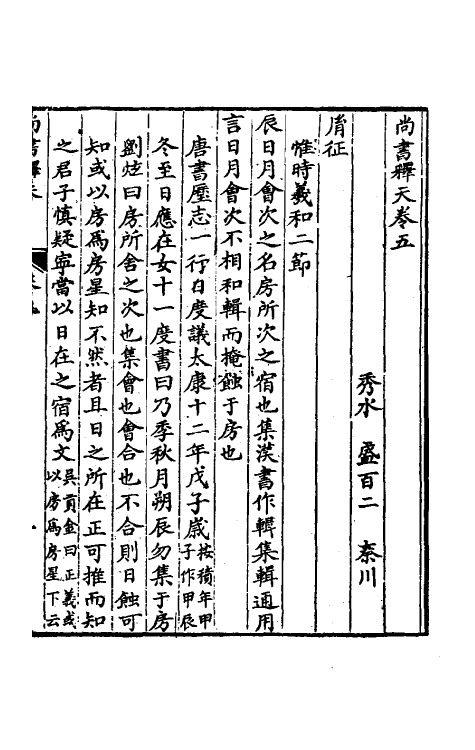 尚書釋天卷五
秀水 盛百二 秦川
胤征
惟時羲和二節
辰日月會次之名房所次之宿也集漢書作輯集輯通用
言日月會次不相和輯而掩蝕于房也
唐書歷志一行日度議太康十二年戊子歲按積年甲子作甲辰
冬至日應在女十一度書曰乃季秋月朔辰勿集于房
劉炫曰房所舍之次也集會也會合也不合則日蝕可
知或以房爲房星知不然者且日之所在正可推而知
之君子慎疑寧當以日在之宿爲文吳貢金曰正義或以房爲房星下云
尚書釋天